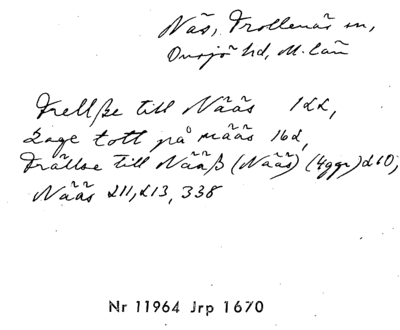 Näs, Trollenäs sn,
Onsjö hd, M. län
Frellße till Nääs 122,
Lage tott på nääs 162,
Frälße till Nääß (Nääs) (4ggr) 210,
Nääs 211, 213, 338
Nr 11964 Jrp 1670